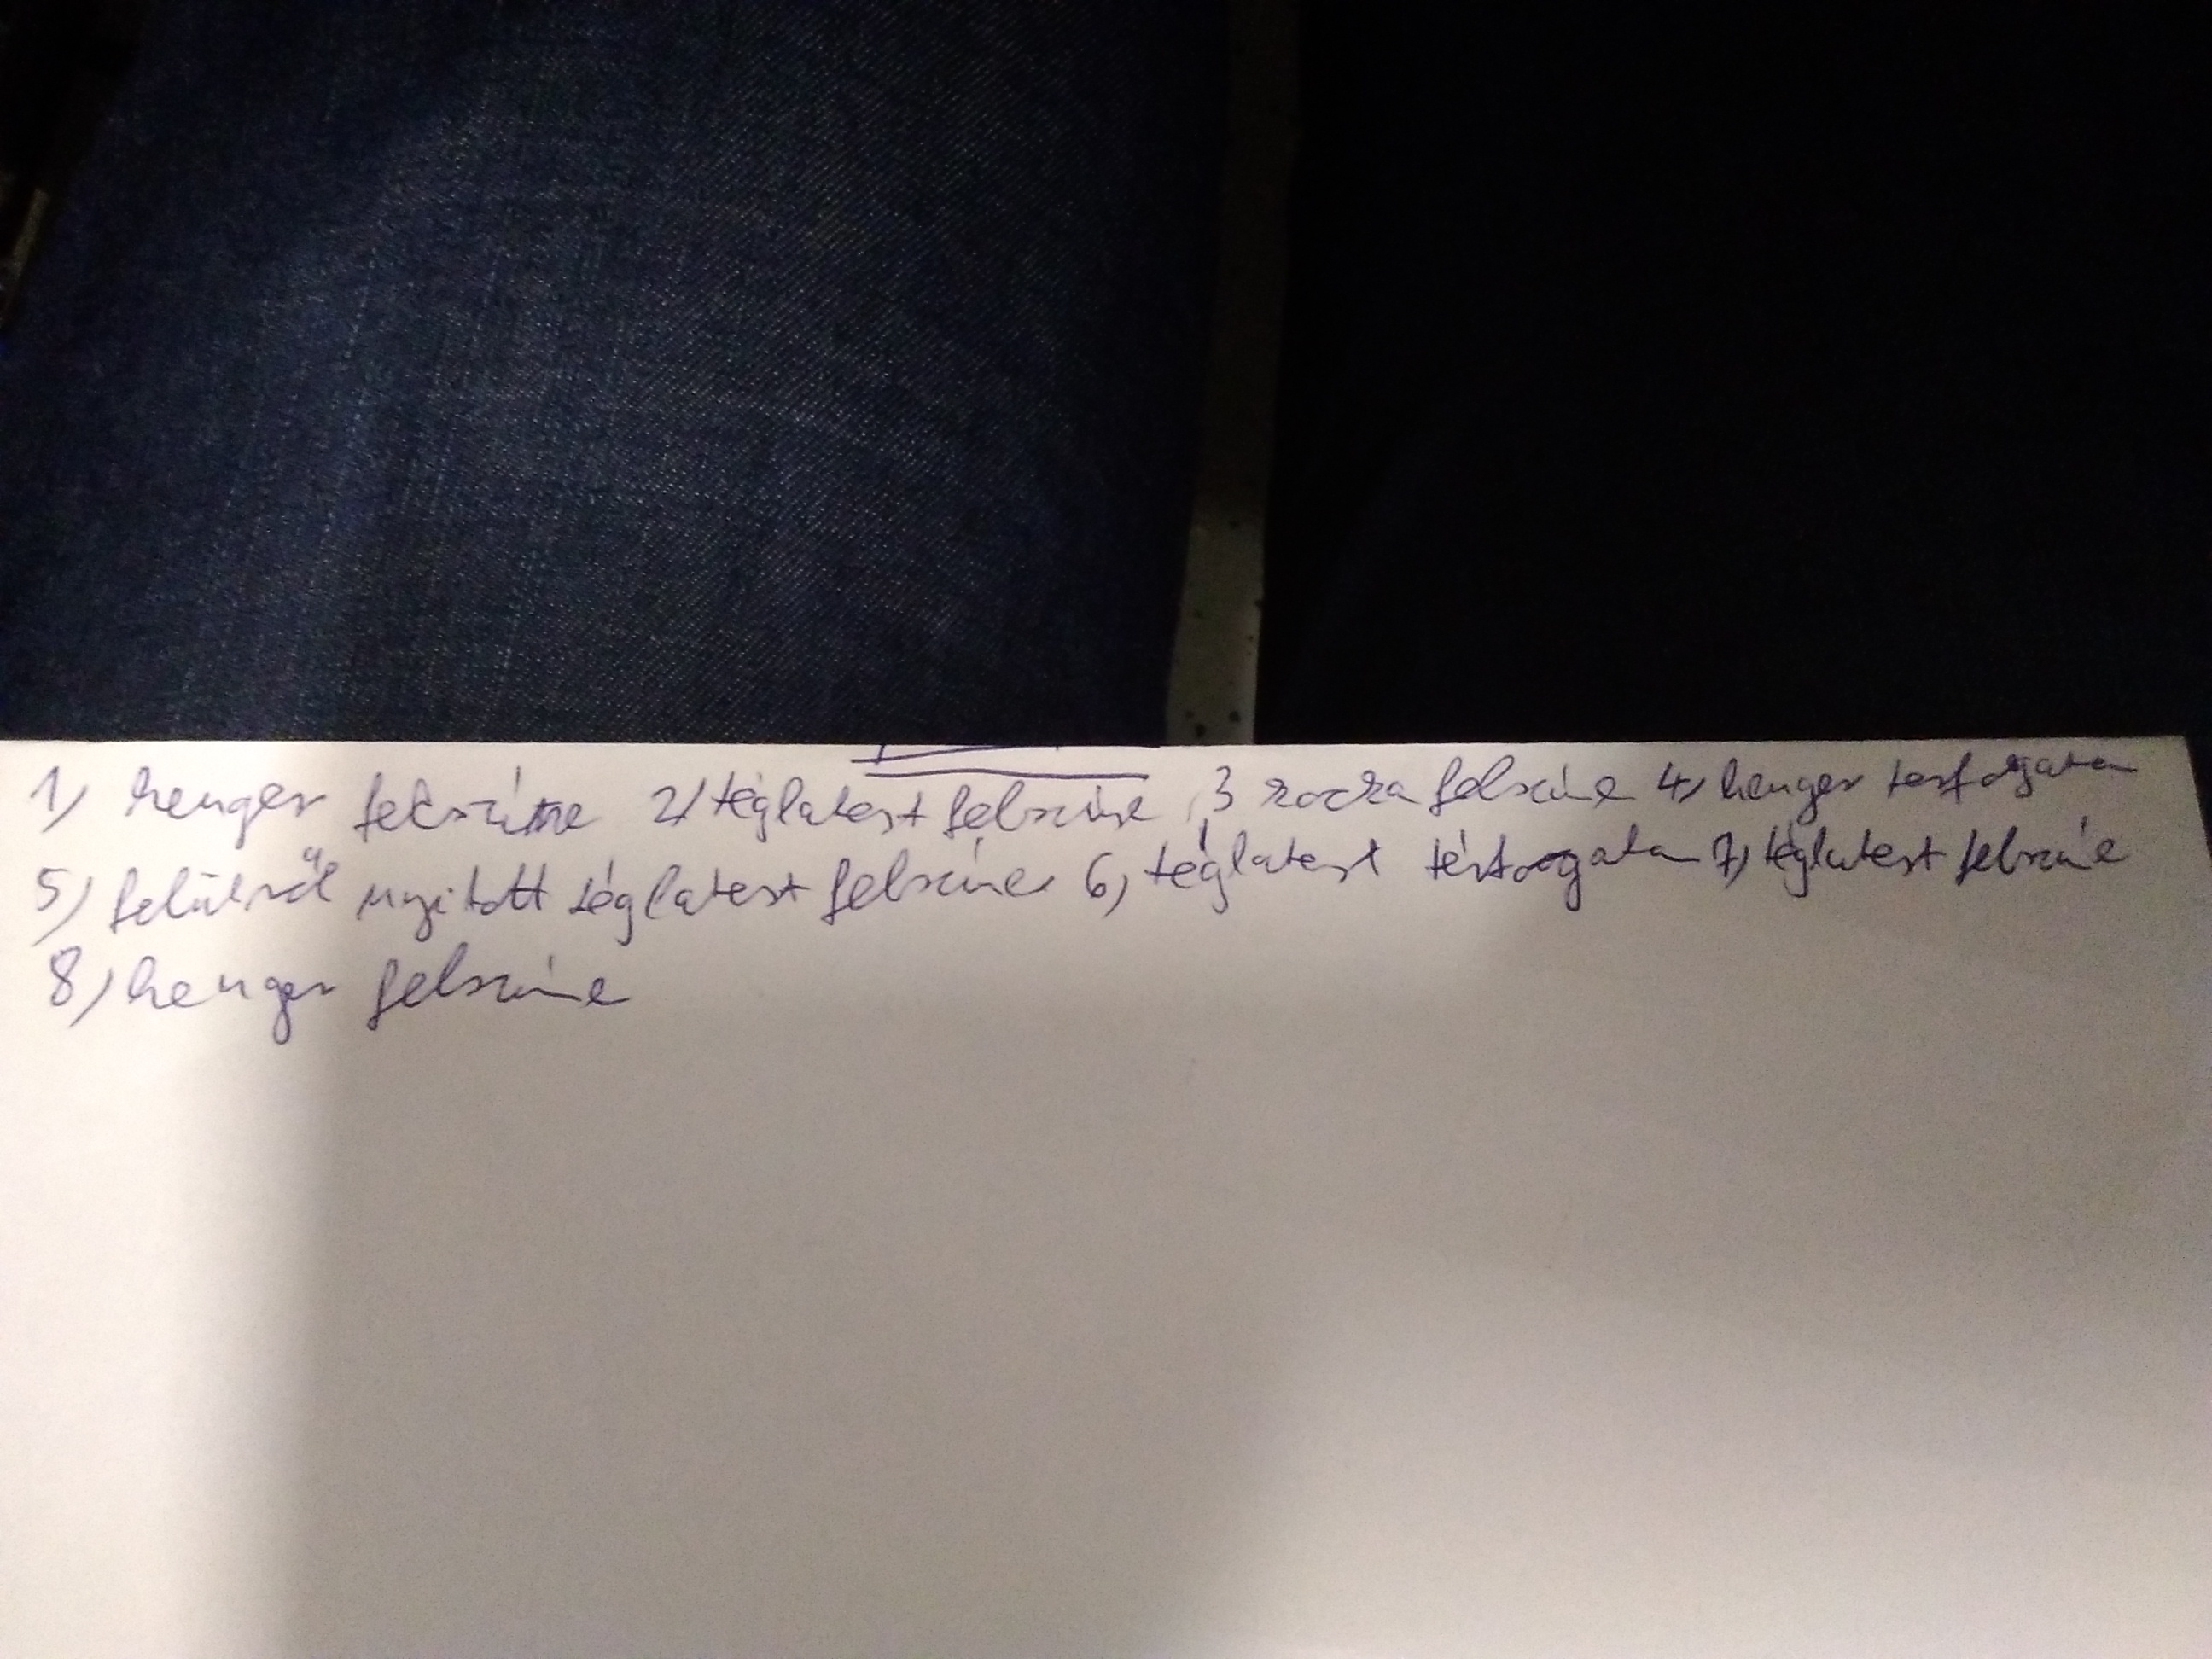 1) henger felszíne 2) téglatest felszíne 3 kocka felszíne 4) henger térfogata
5) felülről nyitott téglatest felszíne 6) téglatest térfogata 7) téglatest felszíne
8) henger felszíne